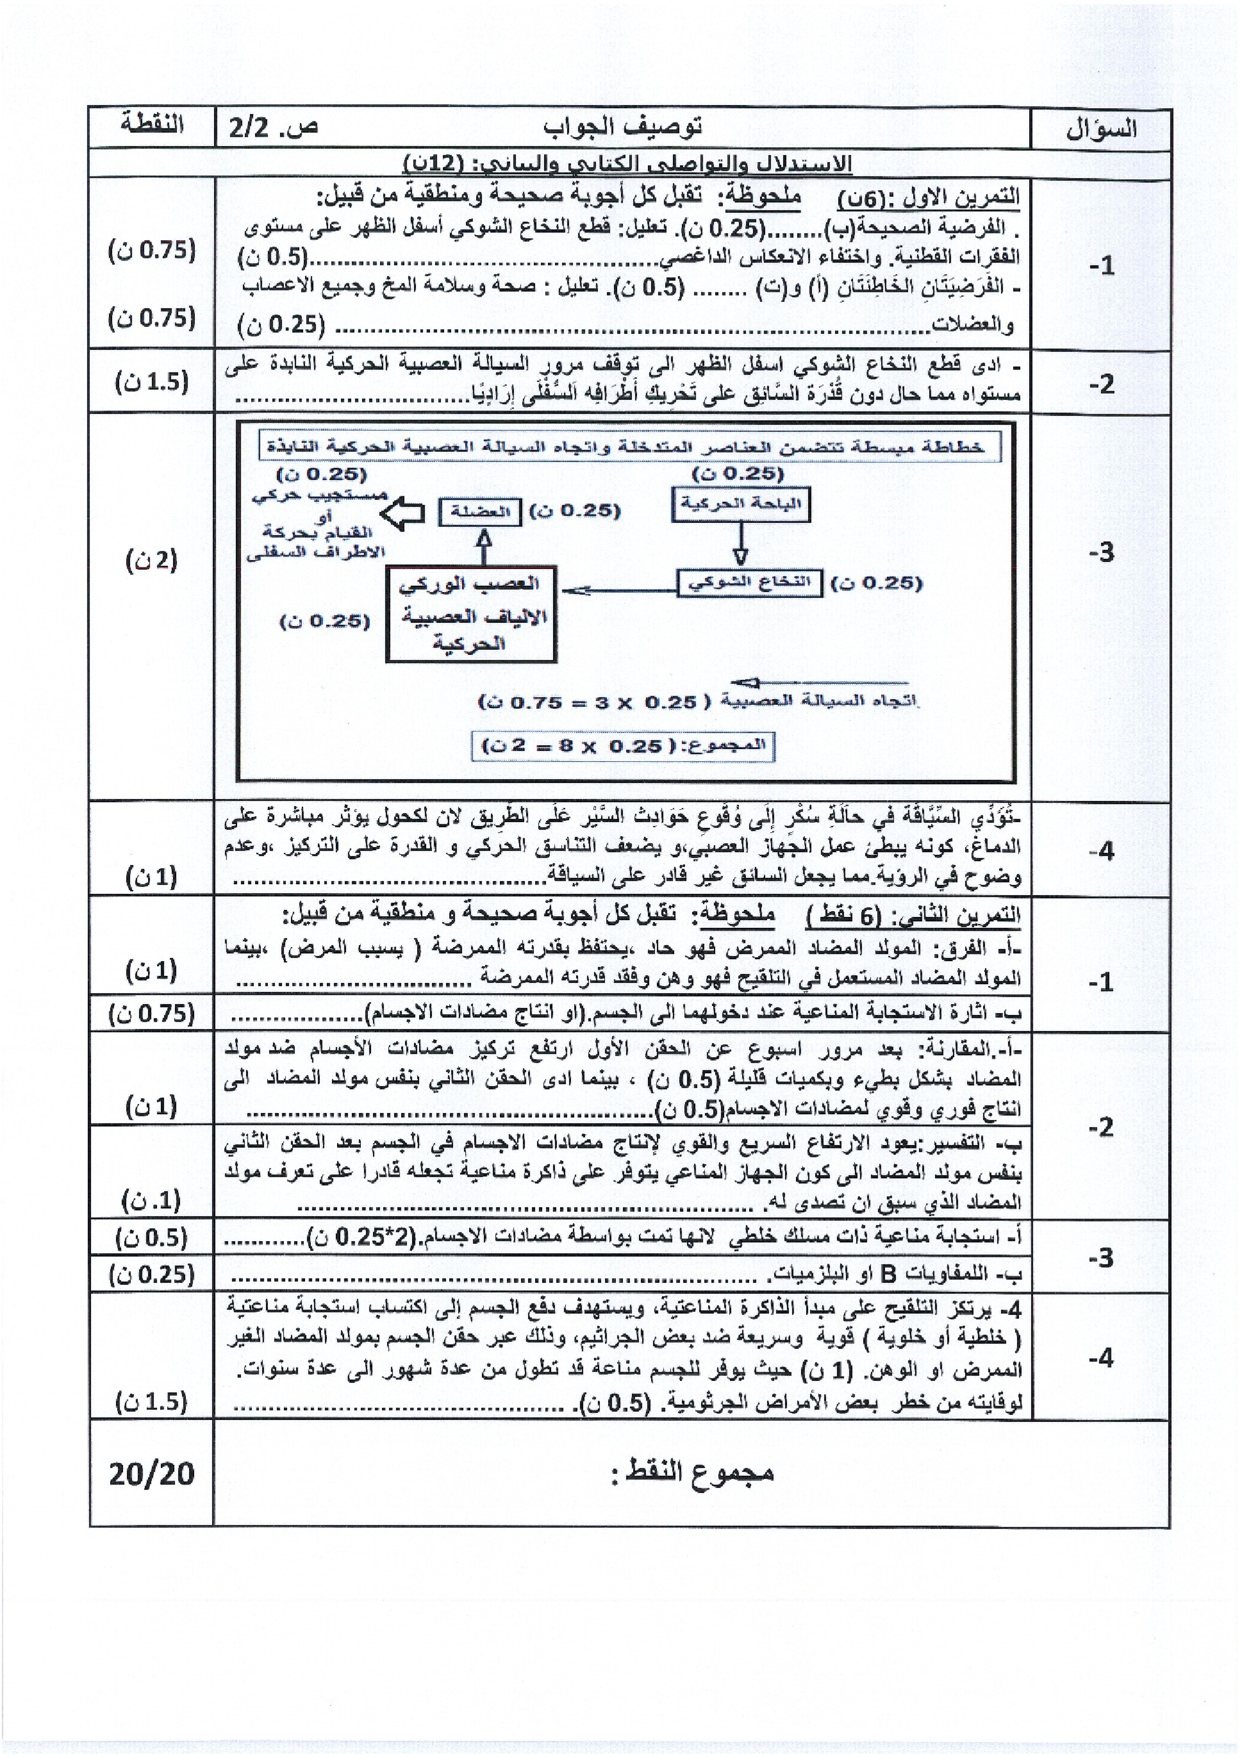 السؤال توصيف الجواب ص. 2/2 النقطة
الاستدلال والتواصلي الكتابي والبياني: (12ن)
التمرين الاول :(6ن) ملحوظة: تقبل كل أجوبة صحيحة ومنطقية من قبيل:
1-
. الفرضية الصحيحة(ب)........(0.25 ن). تعليل: قطع النخاع الشوكي أسفل الظهر على مستوى
الفقرات القطنية. واختفاء الانعكاس الداغصي...............................................(0.5 ن)
(0.75 ن)
- الفَرَضِيَتَانِ الخَاطِئَتَانِ (أ) و(ت) ........ (0.5 ن). تعليل : صحة وسلامة المخ وجميع الاعصاب
والعضلات................................................................................ (0.25 ن)
(0.75 ن)
2-
- ادى قطع النخاع الشوكي اسفل الظهر الى توقف مرور السيالة العصبية الحركية النابدة على
مستواه مما حال دون قُدْرَة السَّائِق على تَحْرِيكِ أَطْرَافِه اَلسُّفْلَى إِرَادِيًا................................
(1.5 ن)
3-
خطاطة مبسطة تتضمن العناصر المتدخلة واتجاه السيالة العصبية الحركية النابذة
(0.25 ن) (0.25 ن)
الباحة الحركية
(0.25 ن) العضلة
مستجيب حركي
أو
القيام بحركة
الاطراف السفلى
(0.25 ن) النخاع الشوكي
العصب الوركي
الالياف العصبية
الحركية
(0.25 ن)
اتجاه السيالة العصبية ( 0.25 x 3 = 0.75 ن)
المجموع: ( 0.25 x 8 = 2 ن)
(2 ن)
4-
-تُؤَدِّي السِّيَّاقَة في حَالَةِ سُكْرٍ إِلَى وُقُوعِ حَوَادِث السَّيْر عَلَى الطَّرِيق لان لكحول يؤثر مباشرة على
الدماغ، كونه يبطئ عمل الجهاز العصبي،و يضعف التناسق الحركي و القدرة على التركيز ،وعدم
وضوح في الرؤية.مما يجعل السائق غير قادر على السياقة...........................................
(1 ن)
التمرين الثاني: (6 نقط ) ملحوظة: تقبل كل أجوبة صحيحة و منطقية من قبيل:
1-
-أ- الفرق: المولد المضاد الممرض فهو حاد ،يحتفظ بقدرته الممرضة ( يسبب المرض) ،بينما
المولد المضاد المستعمل في التلقيح فهو وهن وفقد قدرته الممرضة ................................
(1 ن)
ب- اثارة الاستجابة المناعية عند دخولهما الى الجسم.(او انتاج مضادات الاجسام)..................
(0.75 ن)
2-
-أ-.المقارنة: بعد مرور اسبوع عن الحقن الأول ارتفع تركيز مضادات الأجسام ضد مولد
المضاد بشكل بطيء وبكميات قليلة (0.5 ن) ، بينما ادى الحقن الثاني بنفس مولد المضاد الى
انتاج فوري وقوي لمضادات الاجسام(0.5 ن).......................................................
(1 ن)
ب- التفسير:يعود الارتفاع السريع والقوي لإنتاج مضادات الاجسام في الجسم بعد الحقن الثاني
بنفس مولد المضاد الى كون الجهاز المناعي يتوفر على ذاكرة مناعية تجعله قادرا على تعرف مولد
المضاد الذي سبق ان تصدى له. ..............................................................
(1. ن)
3-
أ- استجابة مناعية ذات مسلك خلطي لانها تمت بواسطة مضادات الاجسام.(2*0.25 ن)...........
(0.5 ن)
ب- اللمفاويات B او البلزميات. ........................................................................
(0.25 ن)
4-
4- يرتكز التلقيح على مبدأ الذاكرة المناعتية، ويستهدف دفع الجسم إلى اكتساب استجابة مناعتية
( خلطية أو خلوية ) قوية وسريعة ضد بعض الجراثيم، وذلك عبر حقن الجسم بمولد المضاد الغير
الممرض او الوهن. (1 ن) حيث يوفر للجسم مناعة قد تطول من عدة شهور الى عدة سنوات.
لوقايته من خطر بعض الأمراض الجرثومية. (0.5 ن). .............................................
(1.5 ن)
مجموع النقط : 20/20